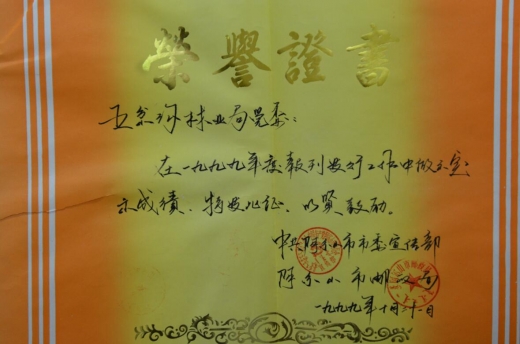 榮譽證書
五岔沟林业局党委:
在一九九九年度报刊发行工作中做出突
出成绩，特发此证，以资鼓励。
中共阿尔山市市委宣传部
阿尔山市邮政局
一九九九年十月十一日